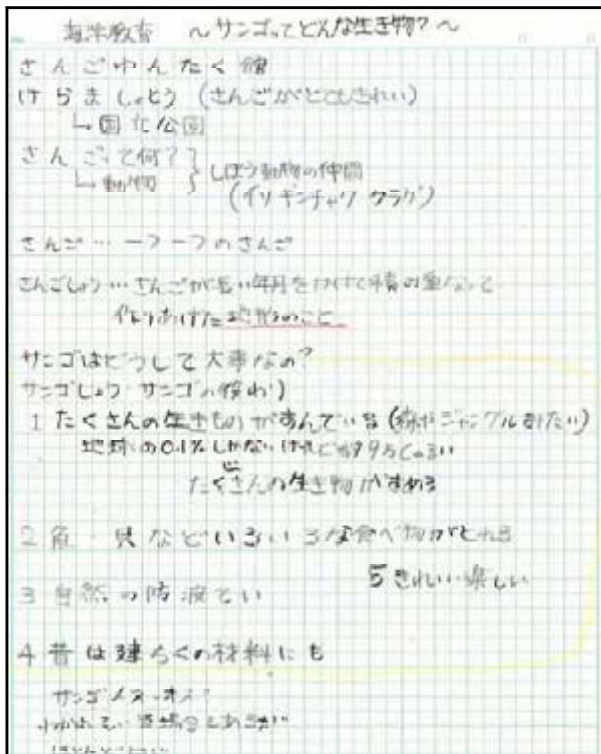 海洋教育 ～サンゴってどんな生き物?～
さんごゆんたく館
けらましょとう (さんごがとてもきれい)
↳国立公園
さんごって何?
↳動物 } しぼう動物の仲間
(イソギンチャク クラゲ)
さんご…一つ一つのさんご
さんごしょう…さんごが長い年月をかけて積み重なって
作りあげた地形のこと
サンゴはどうして大事なの?
サンゴしょう サンゴの役わり
1 たくさんの生きものがすんでいる (森やジャングルみたい)
地球の0.1%しかないけれど 9万しゅるい
たくさんの生き物がすめる
2 魚 貝などいろいろな食べ物がとれる
5 きれい・楽しい
3 自然の防波てい
4 昔は建ちくの材料にも
サンゴメス・オス?
場合もあるが
ほとんど